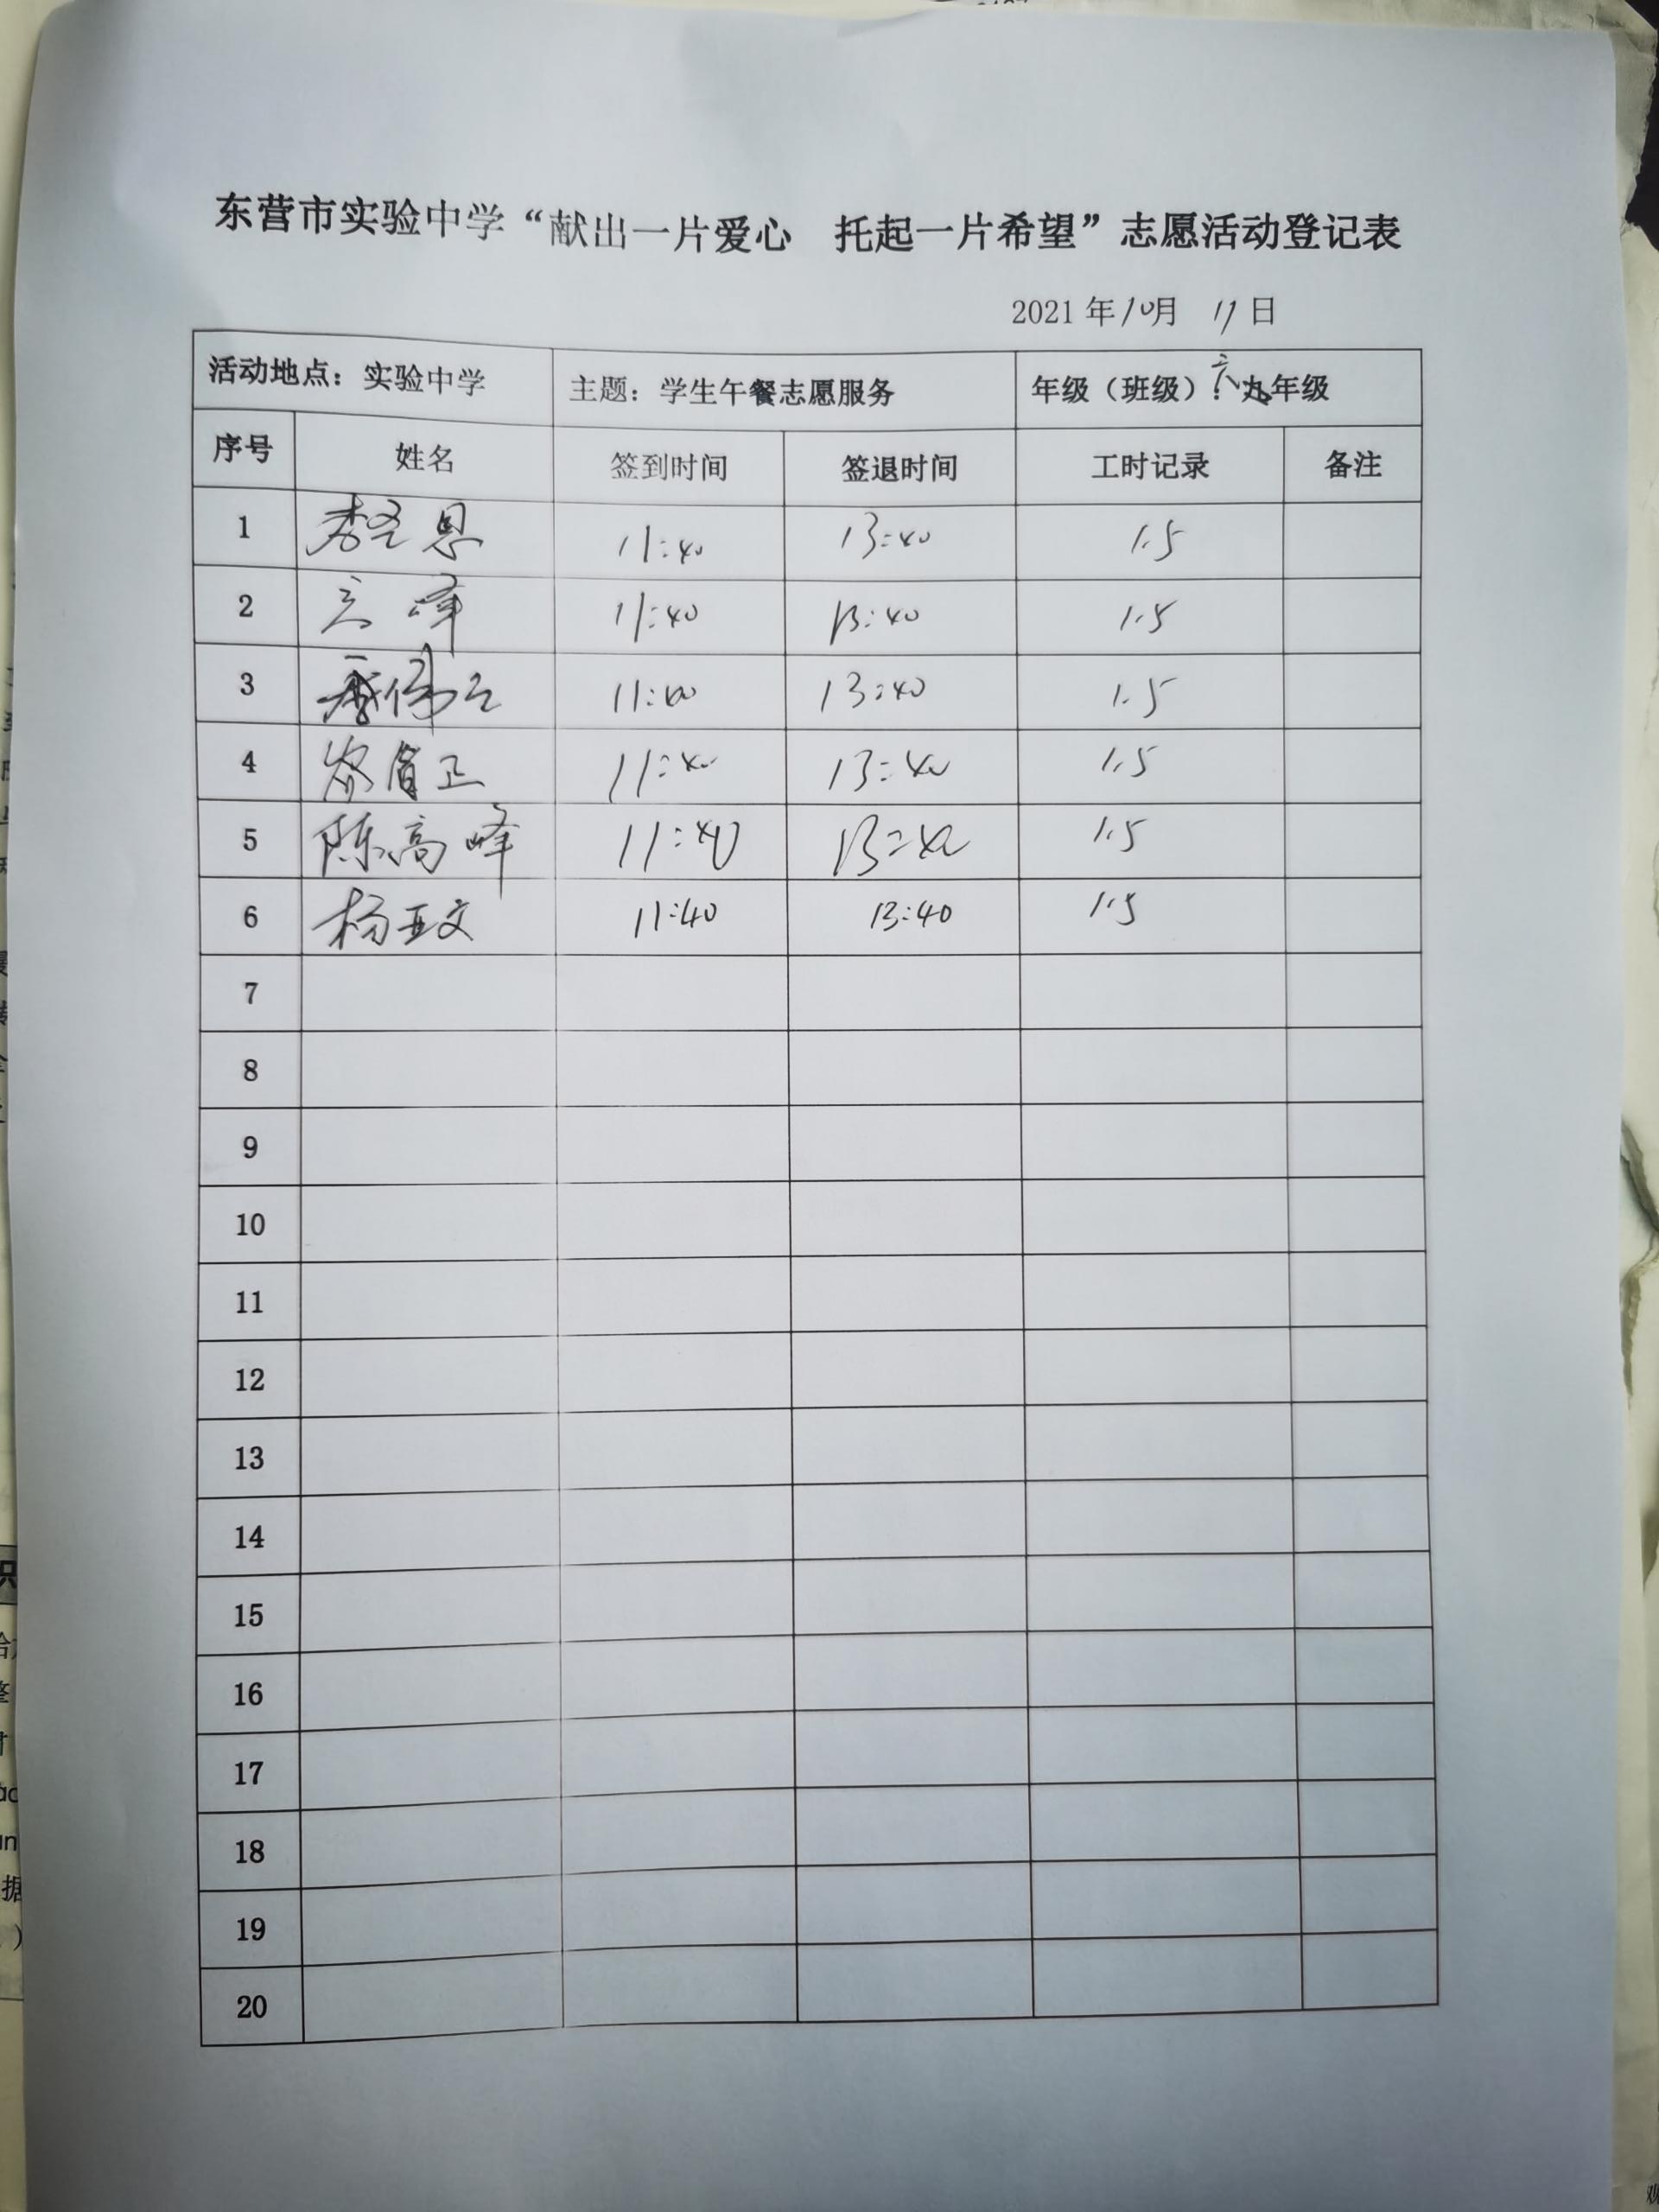 东营市实验中学“献出一片爱心 托起一片希望”志愿活动登记表
2021 年 10月 11 日
活动地点：实验中学 主题：学生午餐志愿服务 年级（班级）：六年级
序号 姓名 签到时间 签退时间 工时记录 备注
1 11:40 13:40 1.5
2 11:40 13:40 1.5
3 11:40 13:40 1.5
4 11:40 13:40 1.5
5 陈高峰 11:40 13:40 1.5
6 杨亚文 11:40 13:40 1.5
7
8
9
10
11
12
13
14
15
16
17
18
19
20